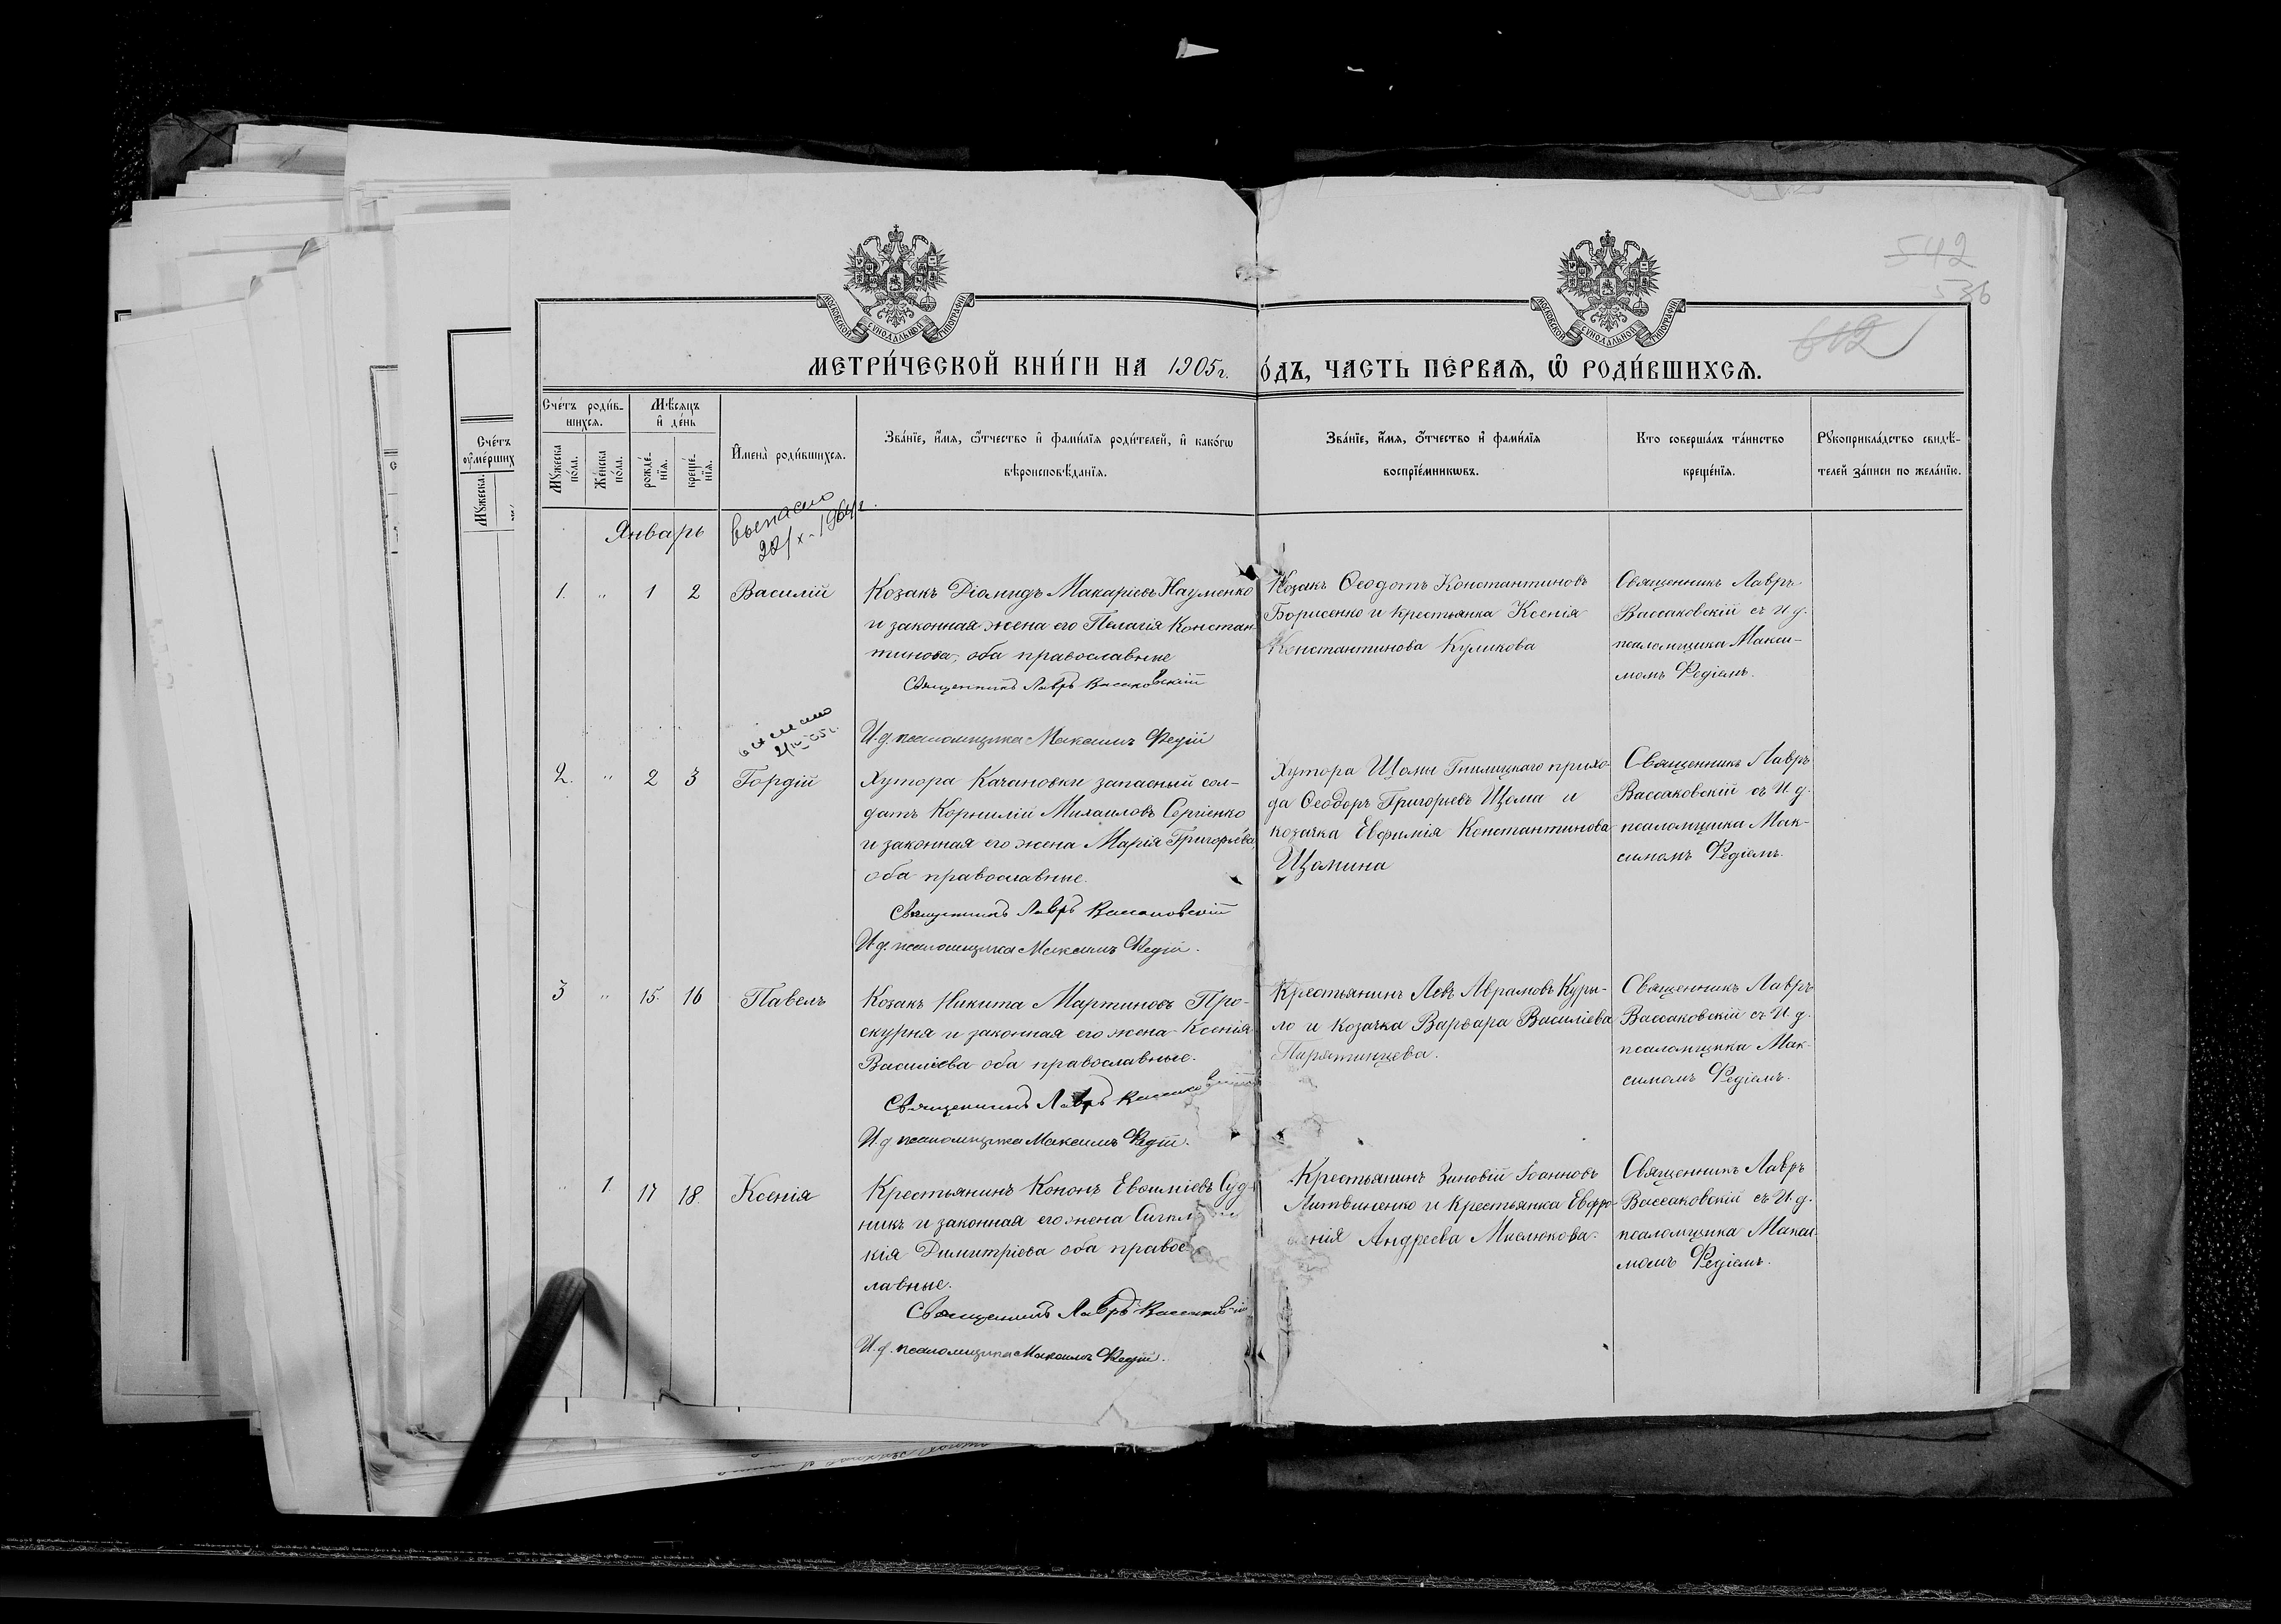 542
536
612
МОСКОВСКОЙ СУНОДАЛЬНОЙ ТИПОГРАФІИ
МОСКОВСКОЙ СУНОДАЛЬНОЙ ТИПОГРАФІИ
МЕТРИ́ЧЕСКОЙ КНИ́ГИ НА 1905 г. О́ДЪ, ЧАСТЬ ПЕ́РВАѦ, Ѽ РОДИ́ВШИХСѦ.
Сче́тъ
оуме́рших
Мꙋжеска
Сче́тъ роди́в-
шихсѧ.
Мꙋжеска по́ла.
Же́нска по́ла.
Мѣ́сѧцъ
и҆ де́нь
рожде́-нїѧ.
креще́-нїѧ.
И҆мена̀ роди́вшихсѧ.
Зва́нїе, и҆́мѧ, ѻ҆́тчество и҆ фами́лїѧ роди́телей, и҆ како́гѡ
вѣроисповѣ́данїѧ.
Зва́нїе, и҆́мѧ, ѻ҆́тчество и҆ фами́лїѧ
воспрїе́мникѡвъ.
Кто соверша́лъ та́инство
креще́нїѧ.
Рꙋкоприкла́дство свидѣ́-
телей за́писи по жела́нїю.
Январь
выпасно
1.
"
1
2
Василій
Козакъ Діомидъ Макаріевъ Науменко
и законная жена его Пелагія Констан-
тинова, оба православные
Священникъ Лавръ Вассаковскій
И. д. псаломщика Максимъ Федій
Козакъ Ѳеодотъ Константиновъ
Борисенко и крестьянка Ксенія
Константинова Куликова
Священникъ Лавръ
Вассаковскій съ И. д.
псаломщика Макси-
момъ Федіемъ.
2.
"
2
3
Гордій
Хутора Качановки запасный сол-
датъ Корнилій Михаиловъ Сергіенко
и законная его жена Марія Григорьева,
оба православные.
Священникъ Лавръ Вассаковскій
И. д. псаломщика Максимъ Федій.
Хутора Щомы Гнилицкаго прихо-
да Ѳеодоръ Григорьевъ Щома и
козачка Евфимія Константинова
Щомина
Священникъ Лавръ
Вассаковскій съ И. д.
псаломщика Мак-
симомъ Федіемъ.
3
"
15.
16
Павелъ
Козакъ Никита Мартиновъ Про-
скурня и законная его жена Ксенія
Василіева оба православные.
Священникъ Лавръ Вассаковскій
И. д. псаломщика Максимъ Федій.
Крестьянинъ Левъ Аврамовъ Куры-
ло и Козачка Варвара Василіева
Пирятинцева.
Священникъ Лавръ
Вассаковскій съ И. д.
псаломщика Мак-
симомъ Федіемъ.
"
1.
17
18.
Ксенія
Крестьянинъ Кононъ Евсиміевъ Суд-
никъ и законная его жена
кія Димитріева оба правос
лавные.
Священникъ Лавръ Вассаковскій
И. д. псаломщика Максимъ Федій.
Крестьянинъ Зиновій Іоанновъ
Литвиненко и Крестьянка Евфро-
нія Андреева Мислюкова.
Священникъ Лавръ
Вассаковскій съ И. д.
псаломщика Макси-
момъ Федіемъ.